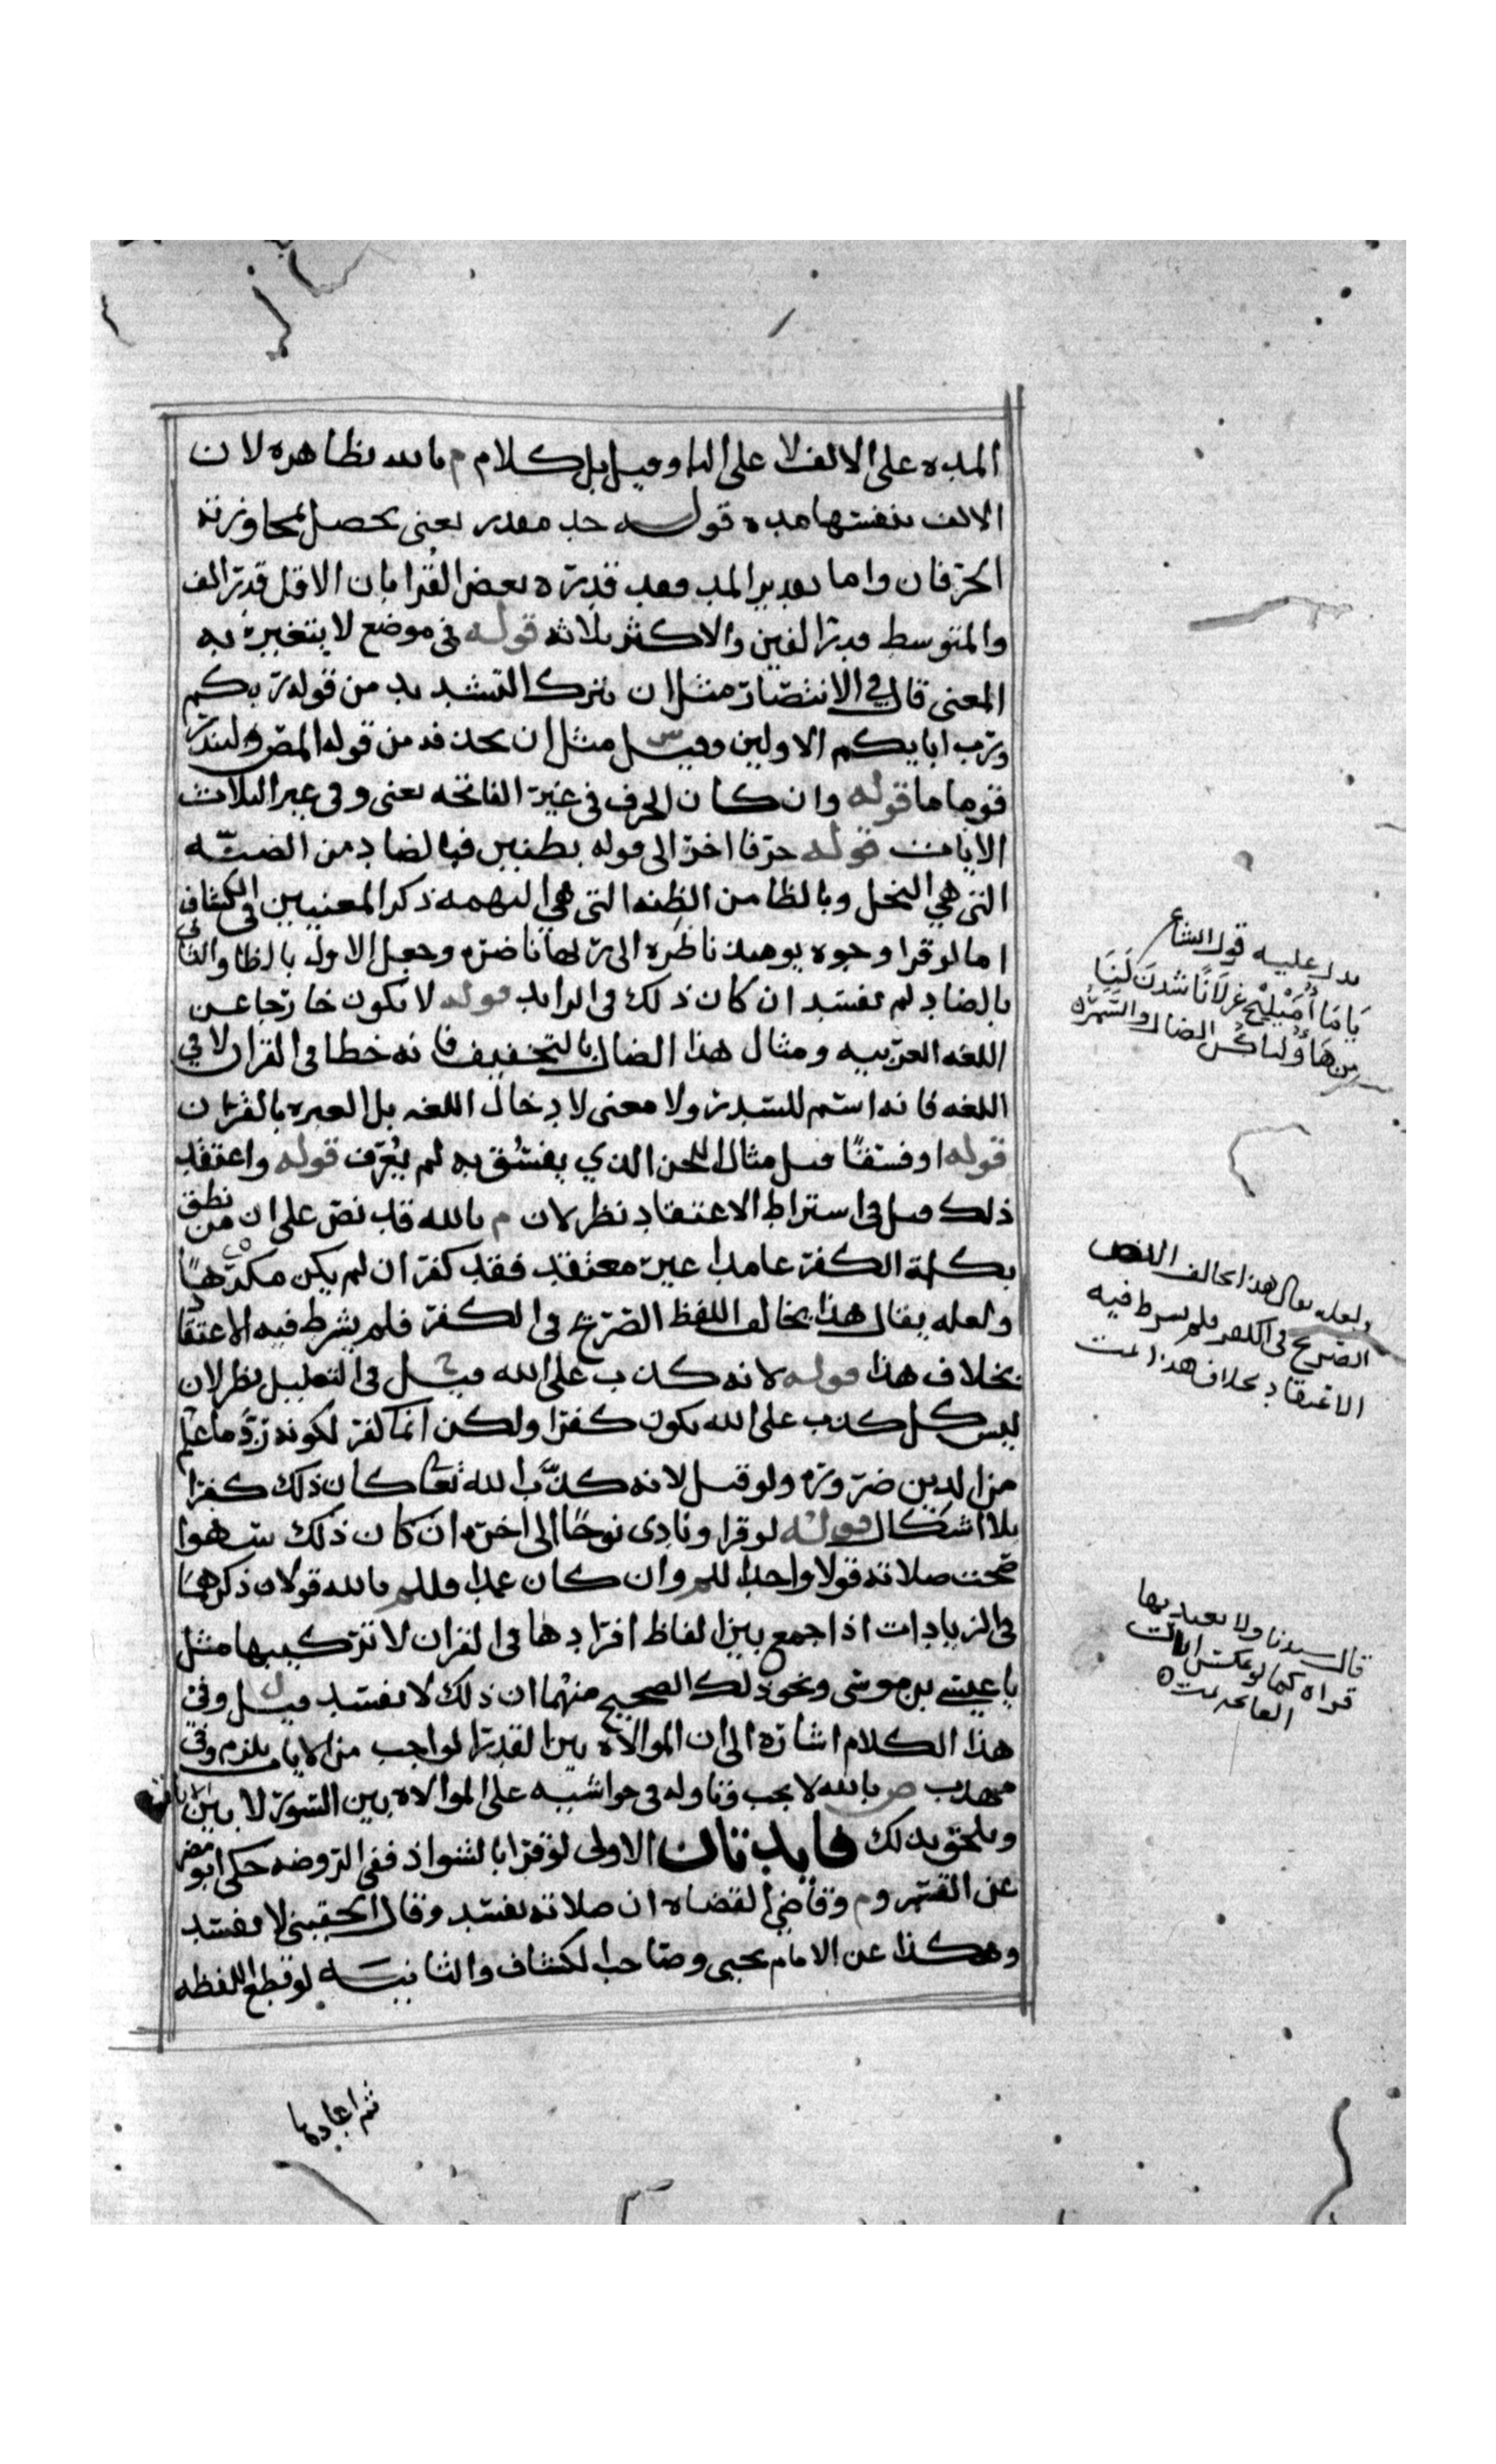 المده على الالف لا على اليا وقيل بل كلام م بالله بظاهره لان
الالف بنفسها مده قوله حد مقدر يعنى يحصل بمجاوزته
الحرفان واما تقدير المد فقد قدره بعض القرا بان الاقل قدر الف
والمتوسط قدر الفين والاكثر ثلاثه قوله في موضع لا يتغير به
المعنى قال في الانتصار مثل ان يترك التشديد من قوله ربكم
ورب ابايكم الاولين وقيل مثل ان يحذفه من قوله المص ولينذر
قوما ما قوله وان كان الحرف في غير الفاتحه يعنى وفي غير الثلاث
الايات قوله حرفا اخر الى قوله بظنين فبالضاد من الضنه
التي هي البخل وبالظا من الظنه التي هي التهمه ذكر المعنيين في الكشاف
اما لو قرا وجوه يوميذ ناظره الى ربها ناضره وجعل الاوله بالظا والثانى
بالضاد لم تفسد ان كان ذلك في الزايد قوله لا يكون خارجا عن
اللغه العربيه ومثال هذا الضال بالتخفيف فانه خطا في القران لا في
اللغه فانه اسم للسدر ولا معنى لادخال اللغه بل العبره بالقران
قوله او فسقا قيل مثال اللحن الذي يفسق به لم يعرف قوله واعتقد
ذلك قيل في اشتراط الاعتقاد نظر لان م بالله قد نص على ان من نطق
بكلمة الكفر عامدا غير معتقد فقد كفر ان لم يكن مكرها
ولعله يقال هذا يخالف اللفظ الصريح في الكفر فلم يشرط فيه الاعتقاد
بخلاف هذا قوله لانه كذب على الله قيل في التعليل نظر لان
ليس كل كذب على الله يكون كفرا ولكن انما كفر لكونه رد ما علم
من الدين ضروره ولو قيل لانه كذب الله تعا كان ذلك كفرا
بلا اشكال قوله لو قرا ونادى نوحا الى اخره ان كان ذلك سهوا
صحت صلاته قولا واحدا للم وان كان عمدا فللم بالله قولان ذكرهما
في الزيادات اذا جمع بين الفاظ افرادها في القران لا تركيبها مثل
يا عيسى بن موسى ونحو ذلك الصحيح منهما ان ذلك لا يفسد قيل وفي
هذا الكلام اشاره الى ان الموالاه بين القدر الواجب من الايات يلزم وفي
مهذب ص بالله لا يجب وتاوله في حواشيه على الموالاه بين السور لا بين الايات
ويلحق بذلك فايدتان الاولى لو قرا بالشواذ ففي الروضه حكى ابو مضر
عن القسم وم وقاضي القضاه ان صلاته تفسد وقال الحقيني لا تفسد
وهكذا عن الامام يحيى وصاحب الكشاف والثانيه لو قطع اللفظه
ثم اعادها
يدل عليه قول الشاعر
ياما اميلح غزلانا شدن لنا
من هاوليائكن الضال والسمره
ولعله يقال هذا يخالف اللفظ
الصريح في الكفر فلم يشرط فيه
الاعتقاد بخلاف هذا تمت
قال سيدنا ولا يعيد بها
قراه كما لو عكس الايات
الفاتحه تمت